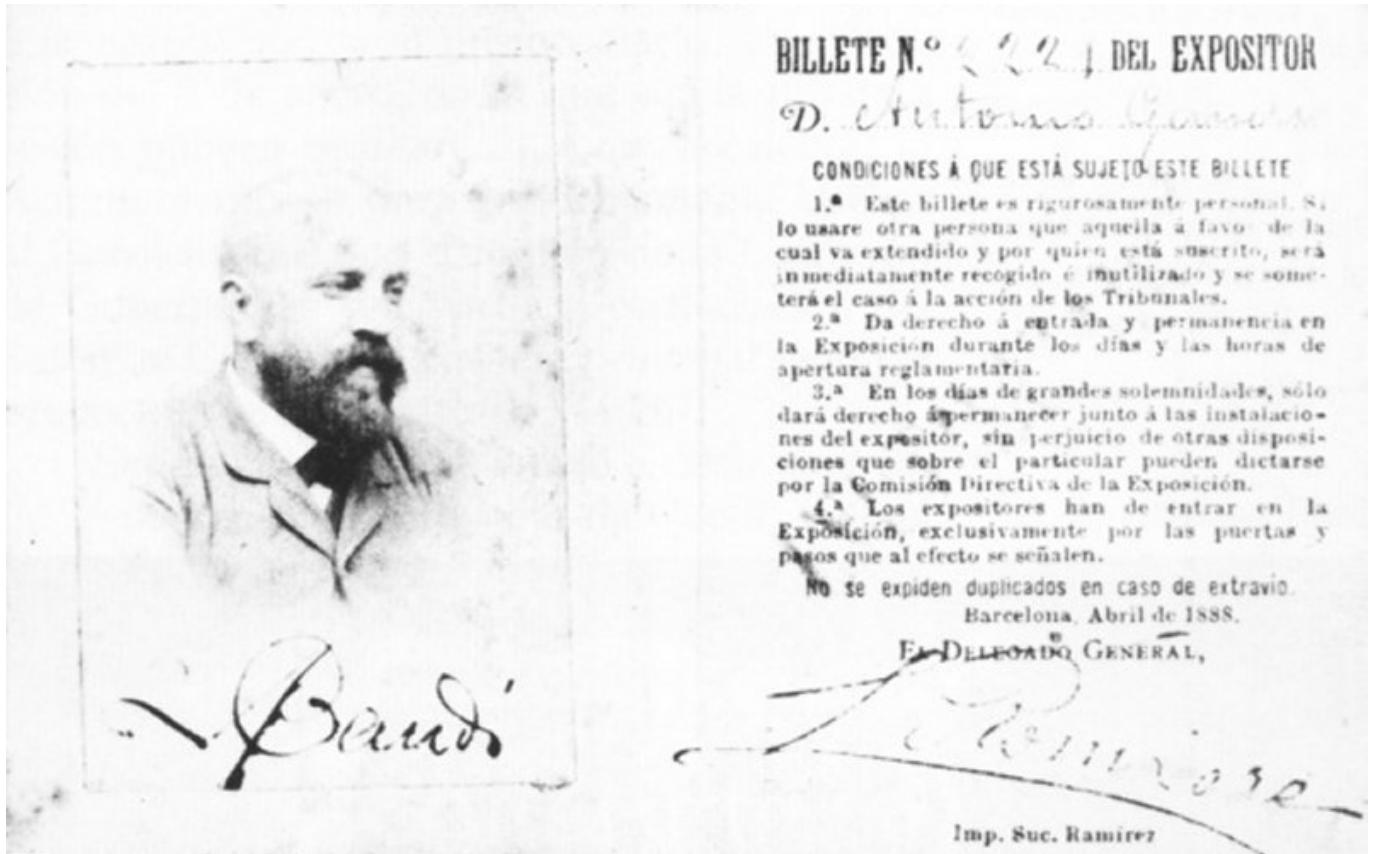 Gaudí
BILLETE N.º 2221 DEL EXPOSITOR
D. Antonio
CONDICIONES Á QUE ESTÁ SUJETO ESTE BILLETE
1.ª Este billete es rigurosamente personal. Si
lo usare otra persona que aquella á favor de la
cual va extendido y por quien está suscrito, será
inmediatamente recogido é inutilizado y se some-
terá el caso á la acción de los Tribunales.
2.ª Da derecho á entrada y permanencia en
la Exposición durante los días y las horas de
apertura reglamentaria.
3.ª En los días de grandes solemnidades, sólo
dará derecho á permanecer junto á las instalacio-
nes del expositor, sin perjuicio de otras disposi-
ciones que sobre el particular pueden dictarse
por la Comisión Directiva de la Exposición.
4.ª Los expositores han de entrar en la
Exposición, exclusivamente por las puertas y
pasos que al efecto se señalen.
No se expiden duplicados en caso de extravio.
Barcelona, Abril de 1888.
EL DELEGADO GENERAL,
Imp. Suc. Ramirez